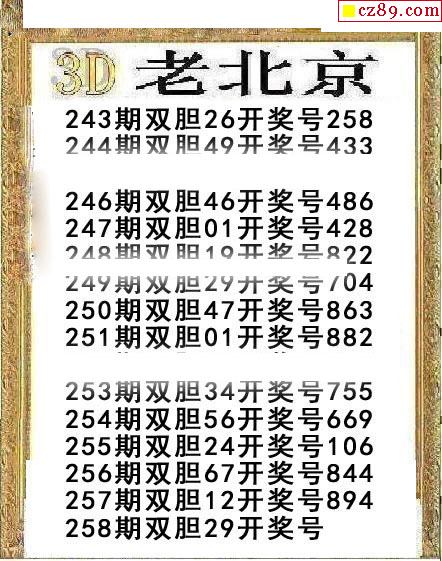 cz89.com
3D 老北京
243期双胆26开奖号258
244期双胆49开奖号433
246期双胆46开奖号486
247期双胆01开奖号428
248期双胆19开奖号822
249期双胆29开奖号704
250期双胆47开奖号863
251期双胆01开奖号882
253期双胆34开奖号755
254期双胆56开奖号669
255期双胆24开奖号106
256期双胆67开奖号844
257期双胆12开奖号894
258期双胆29开奖号